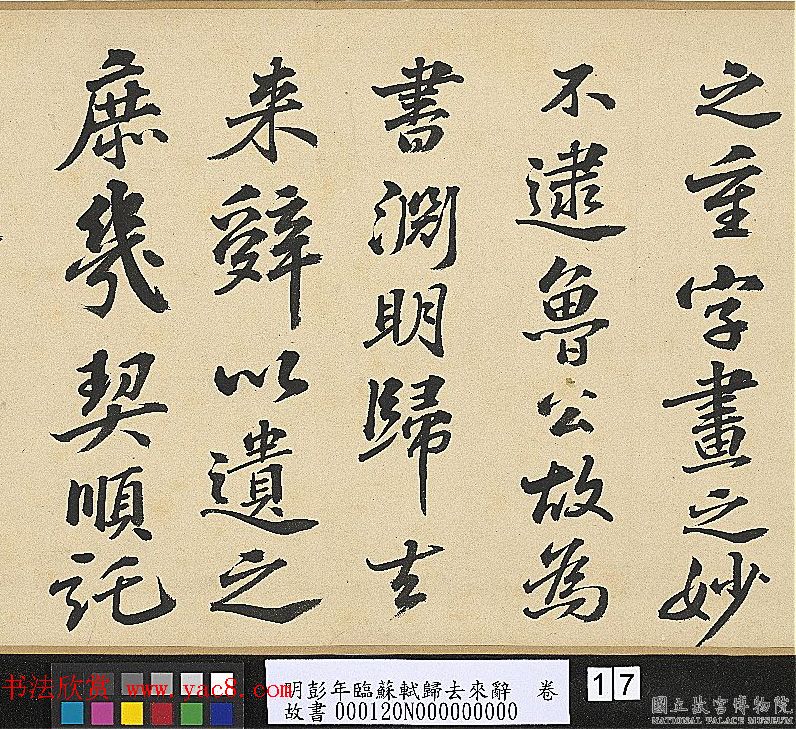 之重字畫之妙
不逮魯公故為
書淵明歸去
来辭以遺之
庶幾契順託
书法欣赏 www.yac8.com
明彭年臨蘇軾歸去來辭 卷
故書 000120N000000000
17
國立故宮博物院
NATIONAL PALACE MUSEUM